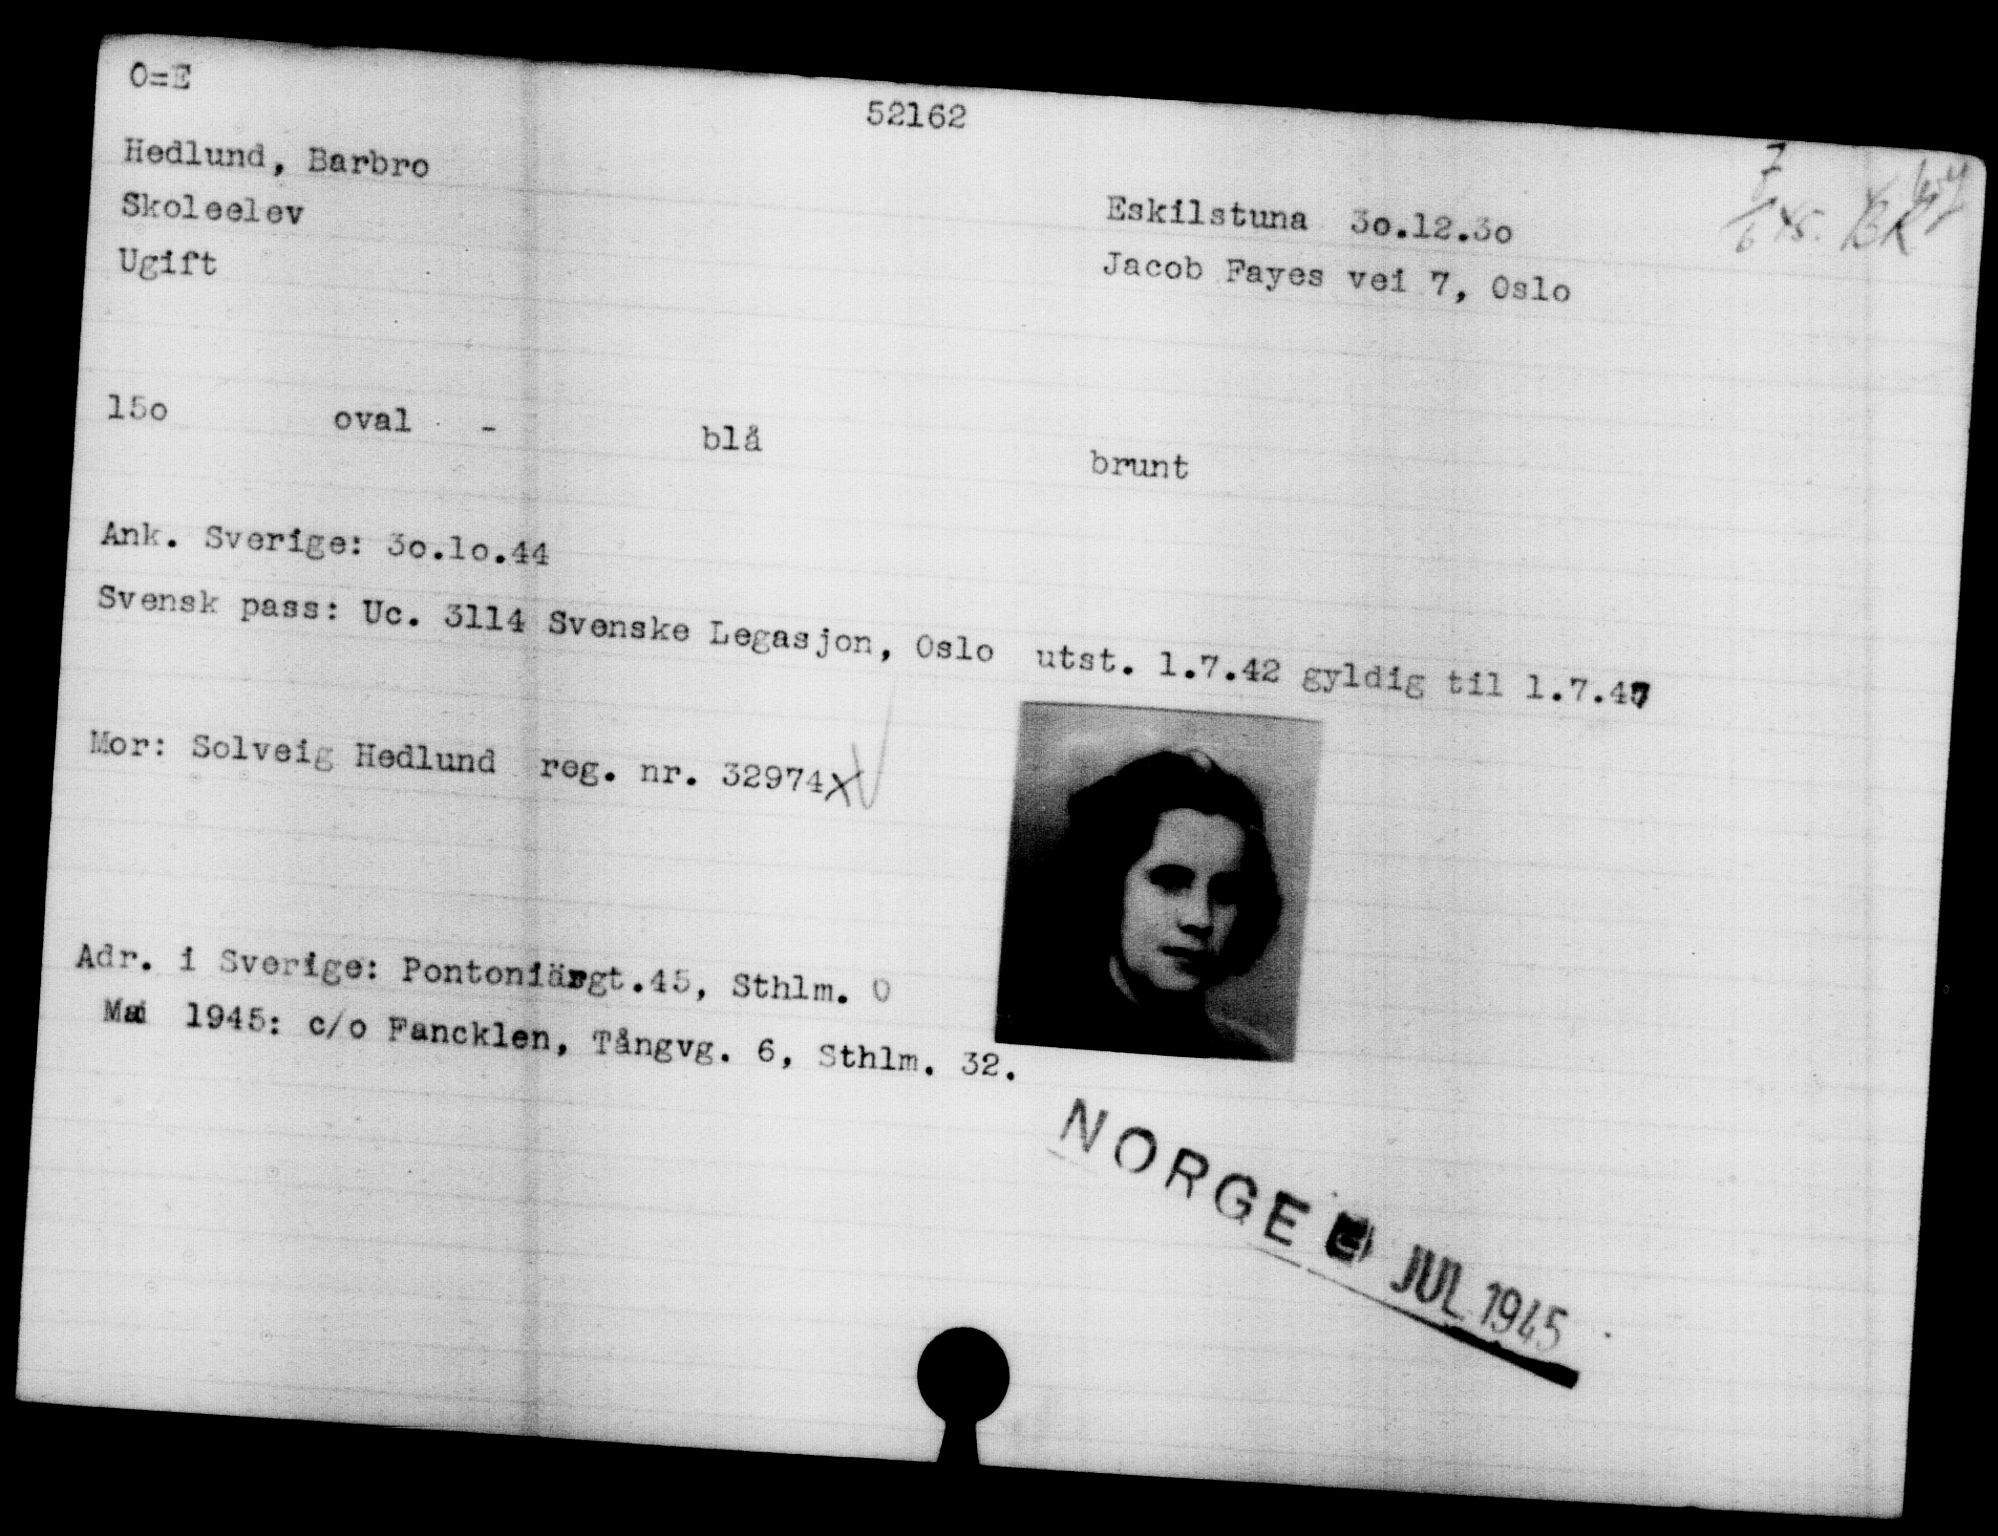 O=E
52162
Hedlund, Barbro
Skoleelev
Eskilstuna 3o.12.3o
Ugift
Jacob Fayes vei 7, Oslo
15o oval - blå brunt
Ank. Sverige: 3o.1o.44
Svensk pass: Uc. 3114 Svenske Legasjon, Oslo utst. 1.7.42 gyldig til 1.7.47
Mor: Solveig Hedlund reg. nr. 32974
Adr. i Sverige: Pontoniärgt.45, Sthlm. O
Mai 1945: c/o Fancklen, Tångvg. 6, Sthlm. 32.
NORGE JUL 1945